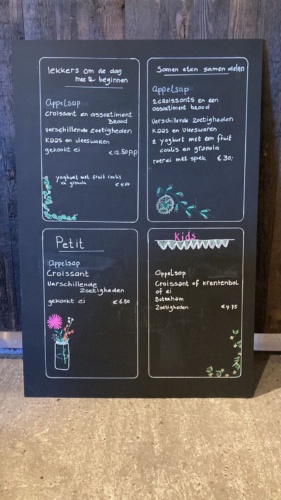 lekkers om de dag
mee te beginnen
Appelsap
Croissant en assortiment
Brood
verschillende zoetigheden
Kaas en vleeswaren
gekookt ei € 12.50 p.p
yoghurt met fruit coulis
en granola
Samen eten samen delen
Appelsap
2 croissants en een
assortiment brood
verschillende zoetigheden
Kaas en vleeswaren
2 yoghurt met een fruit
coulis en granola
roerei met spek € 30,-
Petit
Appelsap
Croissant
Verschillende
zoetigheden
gekookt ei € 6.50
Kids
Appelsap
Croissant of krentenbol
of ei
Boterham
Zoetigheden € 4.75